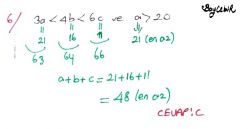 BoyCebir
6) 3a < 4b < 6c ve a > 20
21 16 11 21 (en az)
63 64 66
a+b+c = 21+16+11
= 48 (en az)
CEVAP: C